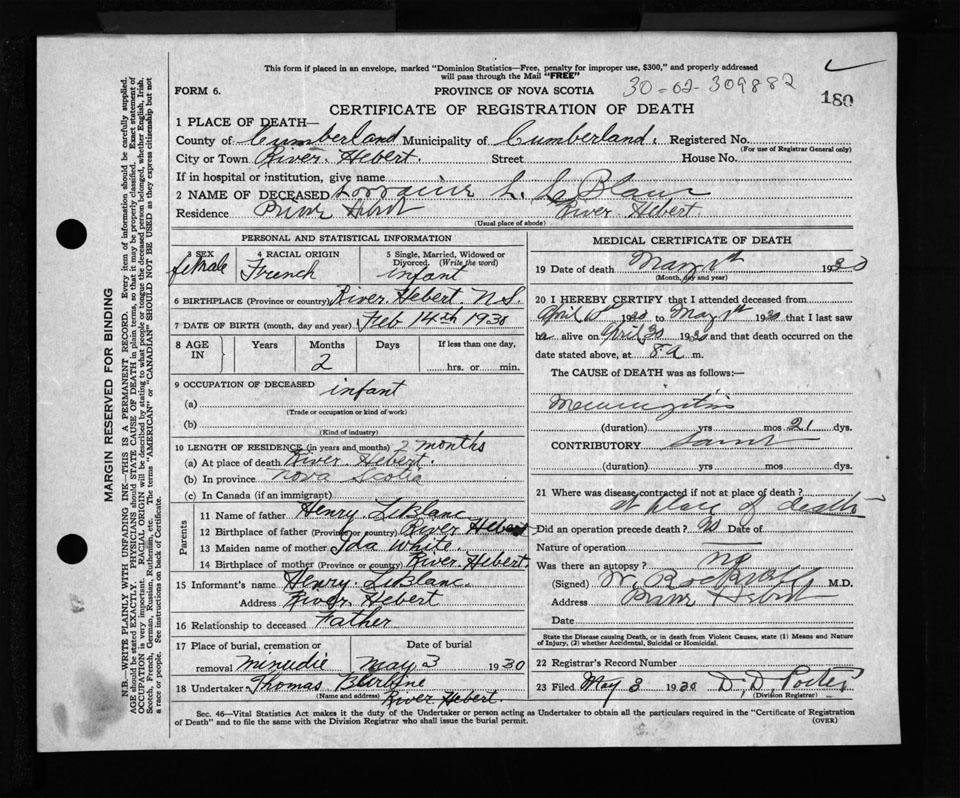 This form if placed in an envelope, marked "Dominion Statistics—Free, penalty for improper use, $300," and properly addressed
will pass through the Mail "FREE"
FORM 6.
PROVINCE OF NOVA SCOTIA
30-02-309882
180
CERTIFICATE OF REGISTRATION OF DEATH
1 PLACE OF DEATH—
County of Cumberland Municipality of Cumberland. Registered No.
(For use of Registrar General only)
City or Town River Hebert. Street House No.
If in hospital or institution, give name
2 NAME OF DECEASED Lorraine L. LeBlanc
Residence River Hebert River Hebert
(Usual place of abode)
PERSONAL AND STATISTICAL INFORMATION
3 SEX female
4 RACIAL ORIGIN French
5 Single, Married, Widowed or Divorced. (Write the word) infant
6 BIRTHPLACE (Province or country) River Hebert N.S.
7 DATE OF BIRTH (month, day and year) Feb 14th 1930
8 AGE IN Years Months Days If less than one day,
2 hrs. or min.
9 OCCUPATION OF DECEASED infant
(a)
(Trade or occupation or kind of work)
(b)
(Kind of industry)
10 LENGTH OF RESIDENCE (in years and months) 2 months
(a) At place of death River Hebert.
(b) In province Nova Scotia
(c) In Canada (if an immigrant)
Parents
11 Name of father Henry LeBlanc
12 Birthplace of father (Province or country) River Hebert
13 Maiden name of mother Ida White.
14 Birthplace of mother (Province or country) River Hebert.
15 Informant's name Henry LeBlanc.
Address River Hebert
16 Relationship to deceased Father
17 Place of burial, cremation or Date of burial
removal Minudie May 3 1930
18 Undertaker Thomas
(Name and address) River Hebert.
MEDICAL CERTIFICATE OF DEATH
19 Date of death May 1st 1930
(Month, day and year)
20 I HEREBY CERTIFY that I attended deceased from
April 10th 1930 to May 1st 1930 that I last saw
alive on April 30 1930 and that death occurred on the
date stated above, at 8 a m.
The CAUSE of DEATH was as follows:—
Meningitis
(duration) yrs mos 21 dys.
CONTRIBUTORY Same
(duration) yrs. mos. dys.
21 Where was disease contracted if not at place of death?
at place of death
Did an operation precede death? No Date of
Nature of operation
Was there an autopsy? no
(Signed) W. M.D.
Address River Hebert
Date
State the Disease causing Death, or in death from Violent Causes, state (1) Means and Nature
of Injury, (2) whether Accidental, Suicidal or Homicidal.
22 Registrar's Record Number
23 Filed May 3 1930 D. D. Porter
(Division Registrar)
Sec. 46—Vital Statistics Act makes it the duty of the Undertaker or person acting as Undertaker to obtain all the particulars required in the "Certificate of Registration
of Death" and to file the same with the Division Registrar who shall issue the burial permit.
(OVER)
MARGIN RESERVED FOR BINDING
N.B.—WRITE PLAINLY WITH UNFADING INK—THIS IS A PERMANENT RECORD. Every item of information should be carefully supplied.
AGE should be stated EXACTLY. PHYSICIANS should STATE CAUSE OF DEATH in plain terms, so that it may be properly classified. Exact statement of
OCCUPATION is very important. RACIAL ORIGIN will be described by stating to what people or tongue the deceased person belonged, whether English, Irish,
Scotch, French, German, Russian, Ruthenian, etc. The terms "AMERICAN" or "CANADIAN" SHOULD NOT BE USED as they express citizenship but not
a race or people. See instructions on back of Certificate.